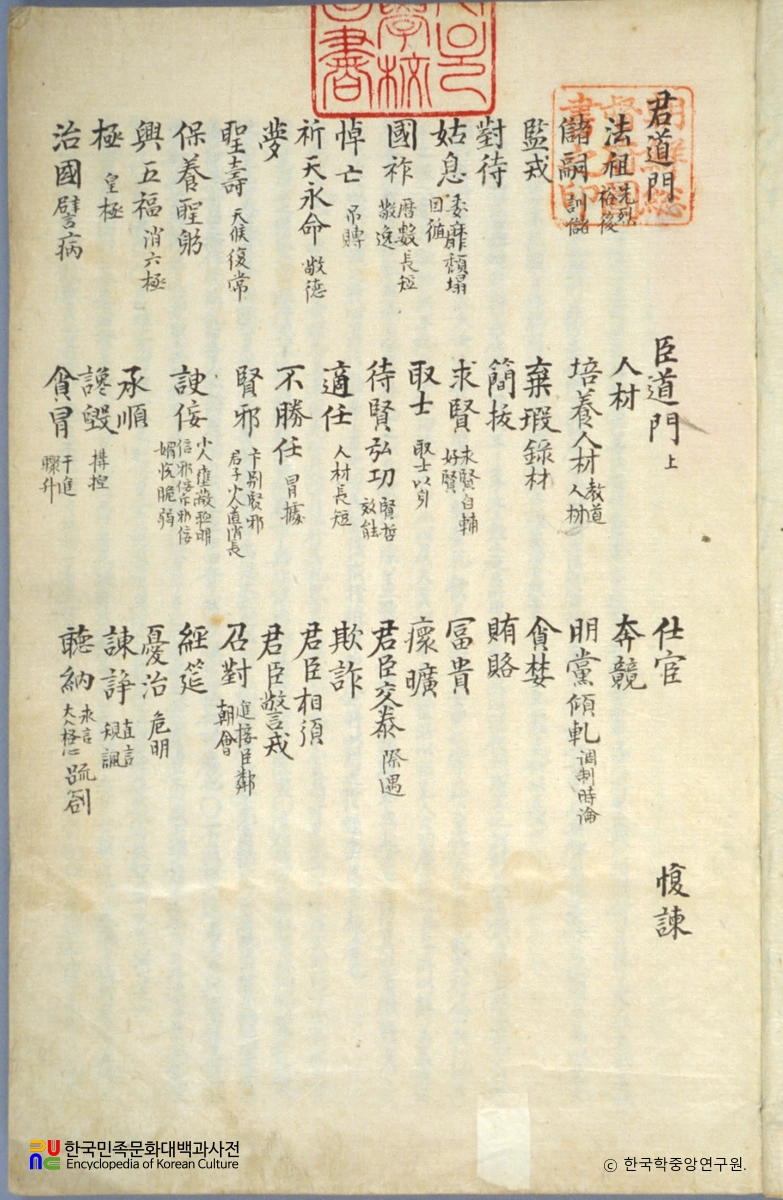 君道門
法祖 先烈 裕後
儲嗣 訓儲
監戒
對待
姑息 委靡頹塌 因循
國祚 曆數長短 敬逸
悼亡 吊賻
祈天永命 敬德
夢
聖壽 天候復常
保養聖躬
興五福 消六極
極 皇極
治國譬病
臣道門 上
人材
培養人材 教道人材
棄瑕錄材
簡拔
求賢 求賢自輔 好賢
取士 取士以列
待賢弘功 賢哲 效能
適任 人材長短
不勝任 冒據
賢邪 卞別賢邪 君子小人道消長
諛佞 小人壅蔽聰明 信邪佞斥邪佞 媚悅脆弱
承順
讒毀 搆捏
貪冒 干進 驟升
仕宦
奔競
朋黨傾軋 調制時論
貪婪
賄賂
富貴
瘝曠
君臣交泰 際遇
欺詐
君臣相須
君臣警戒
召對 進接臣鄰 朝會
經筵
憂治 危明
諫諍 直言 規諷
聽納 求言 大人格心 疏劄
愎諫
한국민족문화대백과사전
Encyclopedia of Korean Culture
ⓒ 한국학중앙연구원.